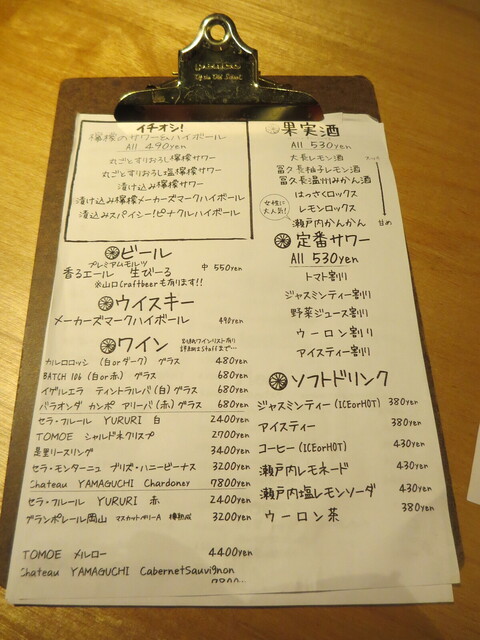 イチオシ!
檸檬のサワー&ハイボール
All 490yen
丸ごとすりおろし檸檬サワー
丸ごとすりおろし塩檸檬サワー
漬け込み檸檬サワー
漬け込み檸檬メーカーズマークハイボール
漬込みスパイシー!ピナクルハイボール
ビール
プレミアムモルツ
香るエール 生びーる 中 550yen
※山口Craftbeerも有ります!!
ウイスキー
メーカーズマークハイボール 490yen
ワイン
詳細はStaffまで…
カルロロッシ (白orダーク) グラス 480yen
BATCH 106 (白or赤) グラス 680yen
イゲルエラ ティントラルバ(白)グラス 680yen
バラオンダ カンポ アリーバ(赤)グラス 680yen
セラ・フルール YURURI 白 2400yen
TOMOE シャルドネクリスプ 2700yen
是里リースリング 3400yen
セラ・モンターニュ ブリズ・ハニービーナス 3200yen
Chateau YAMAGUCHI Chardoney 7800yen
セラ・フルール YURURI 赤 2400yen
グランポレール岡山 マスカットベリーA 樽熟成 3200yen
TOMOE メルロー 4400yen
Chateau YAMAGUCHI CabernetSauvignon
果実酒
All 530yen
大長レモン酒
富久長柚子レモン酒
富久長温州みかん酒
はっさくロックス
レモンロックス
女性に大人気!
瀬戸内かんかん
甘め
定番サワー
All 530yen
トマト割り
ジャスミンティー割り
野菜ジュース割り
ウーロン割り
アイスティー割り
ソフトドリンク
ジャスミンティー(ICEorHOT) 380yen
アイスティー 380yen
コーヒー(ICEorHOT) 430yen
瀬戸内レモネード 430yen
瀬戸内塩レモンソーダ 430yen
ウーロン茶 380yen